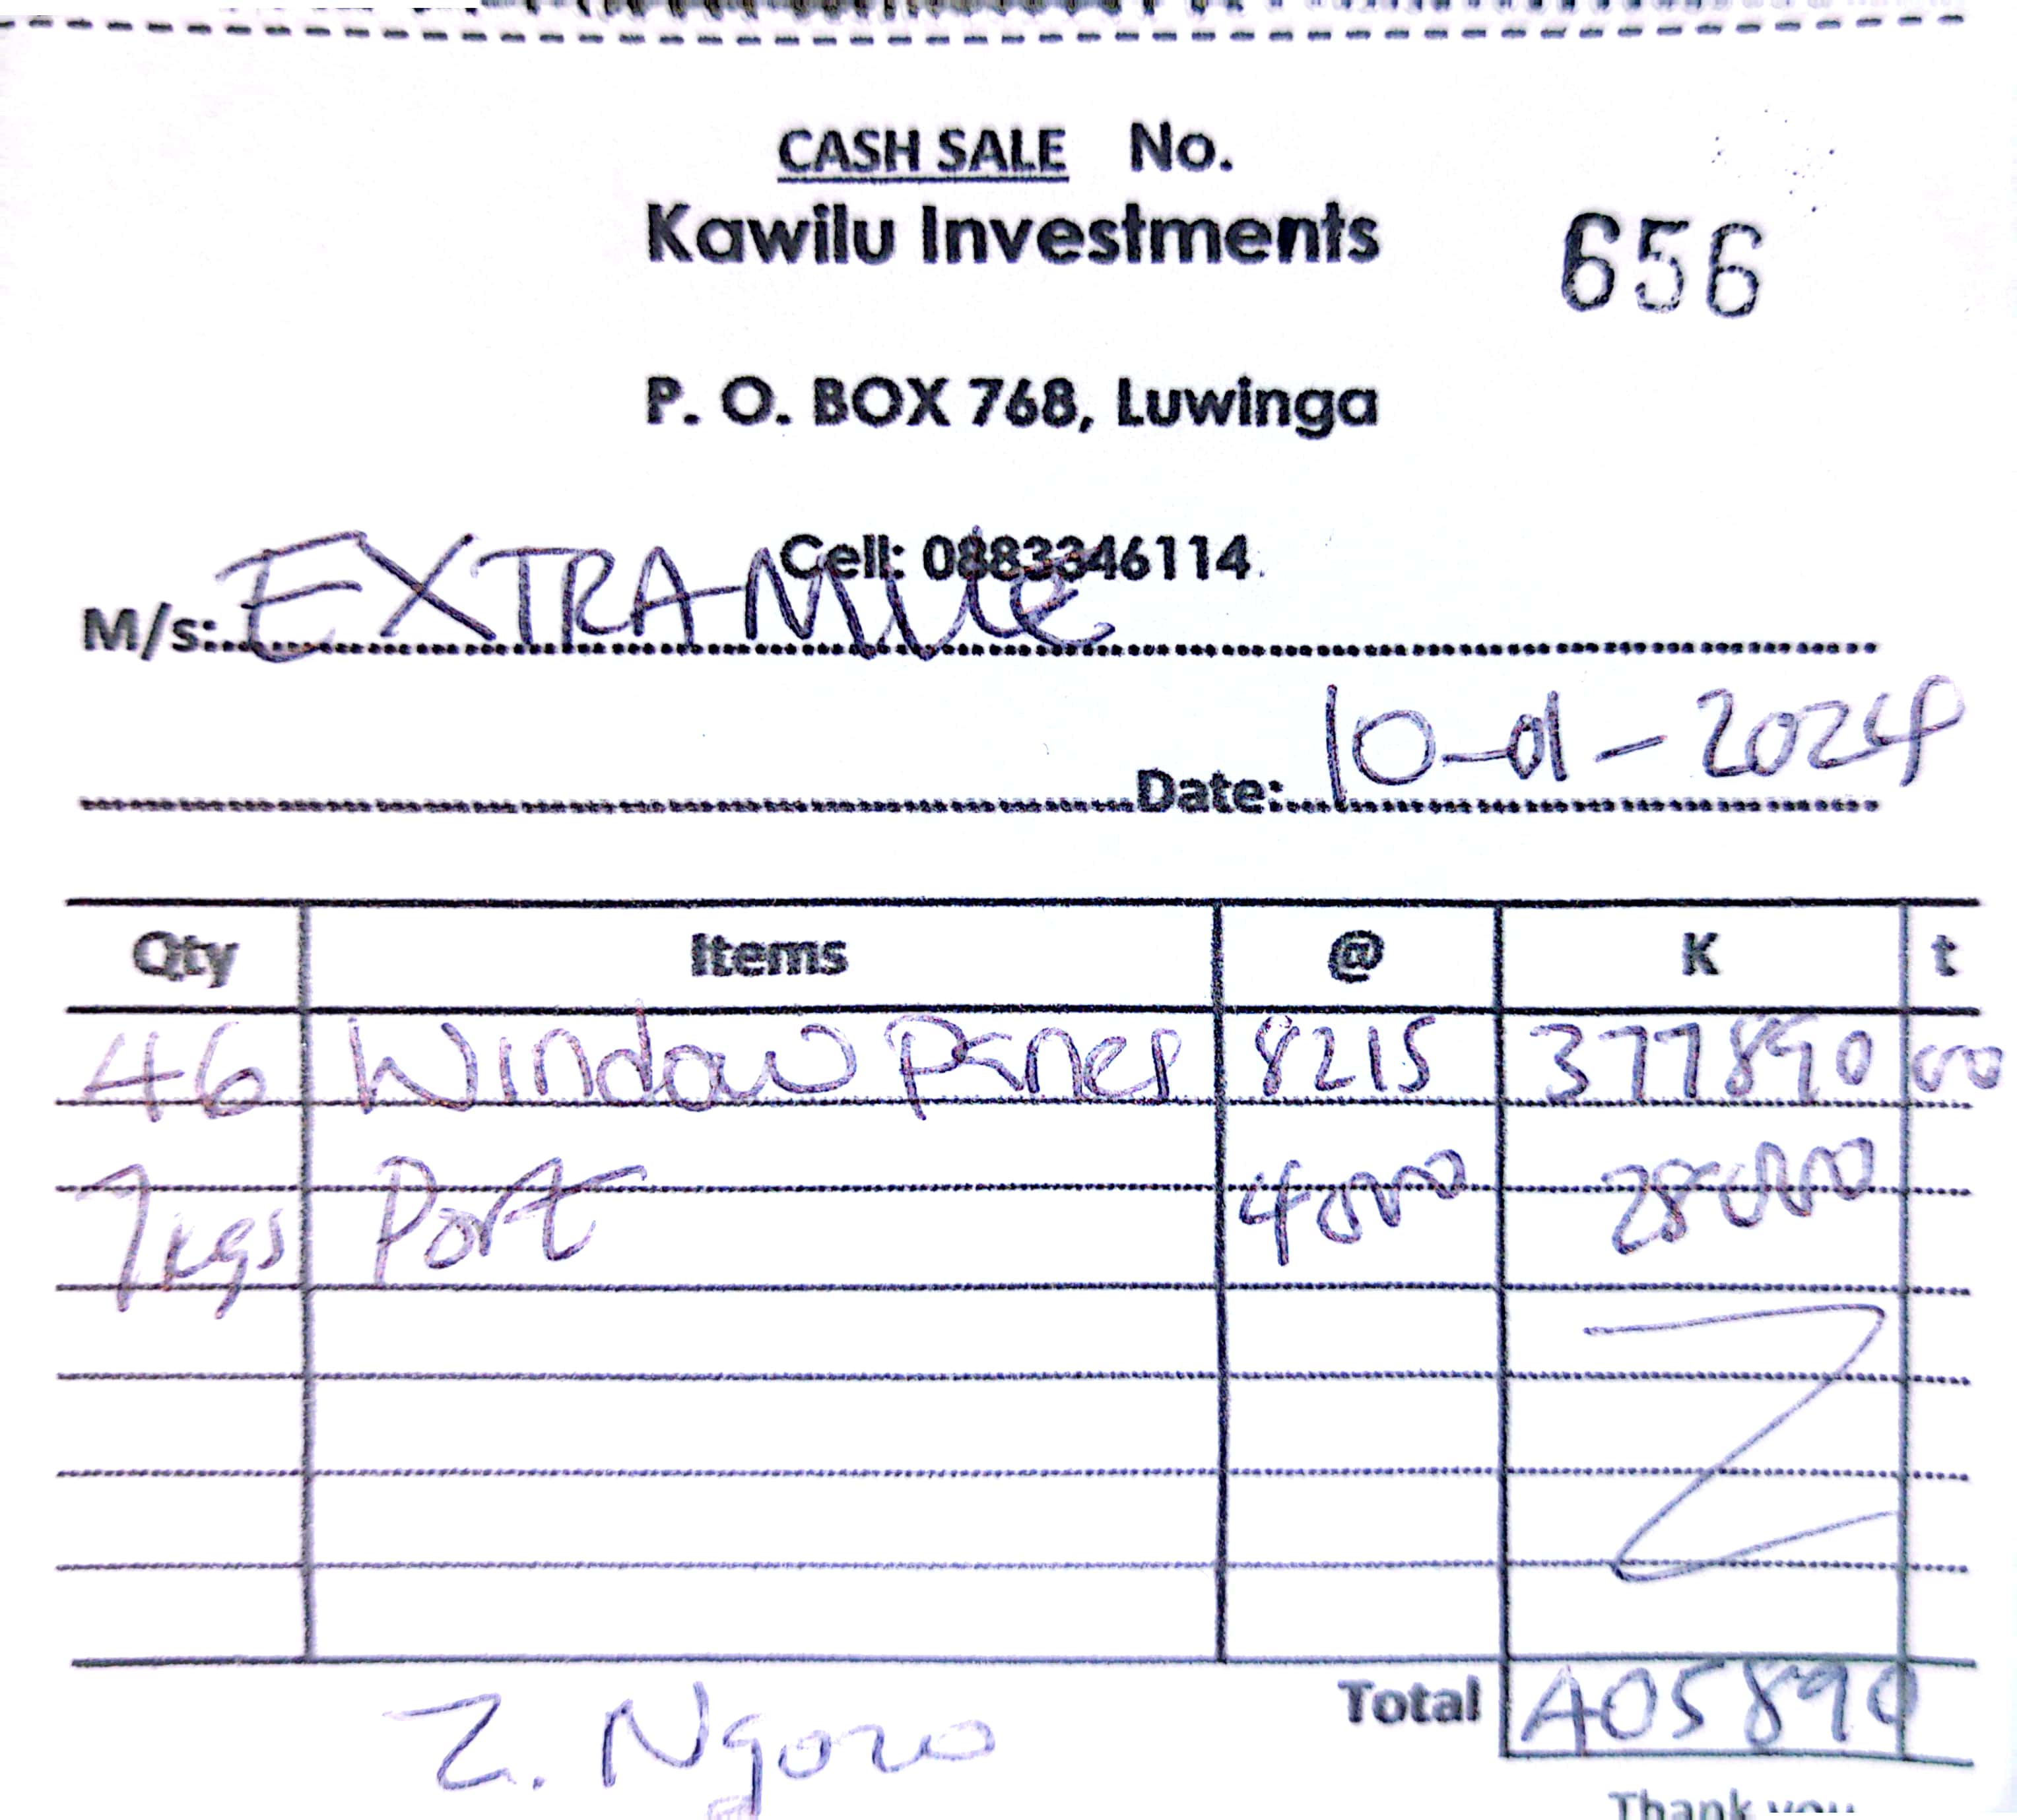 CASH SALE No.
Kawilu Investments 656
P. O. BOX 768, Luwinga
Cell: 0883346114
M/s: EXTRA MILE
Date: 10-01-2024
Qty Items @ K t
46 Window Panes 8215 377890 00
7kgs Port 4000 28000
Total 405890
Z. Ngozo
Thank you